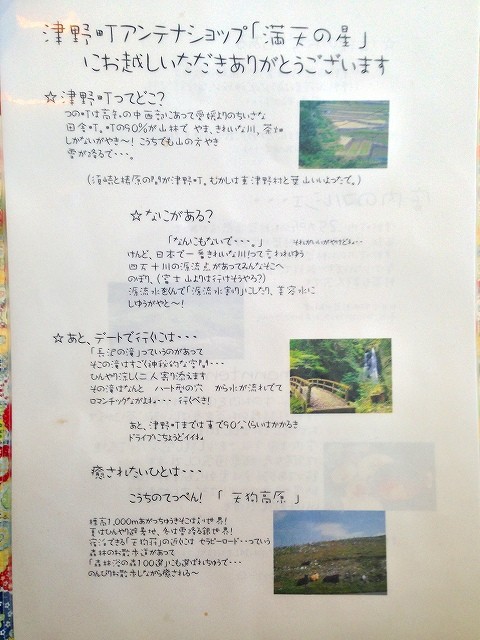 津野町アンテナショップ「満天の星」
にお越しいただきありがとうございます
☆津野町ってどこ?
つの町は高知の中西部にあって愛媛よりのちいさな
田舎町。町の90%が山林で やま、きれいな川、茶畑
しかないがやき〜! こうちでも山の方やき
雪が降るで・・・。
(須崎と梼原の間が津野町。むかしは東津野村と葉山いいよったで。)
☆なにがある?
「なんにもないで・・・。」 それがいいがやけどね・・
けんど、日本で一番きれいな川!って言われゆう
四万十川の源流点があってみんなそこへ
のぼり、(富士山よりは行けそうやろ?)
源流水をくんで「源流水割り」にしたり、美容水に
しゆうがやと〜!
☆あと、デートで行くには・・・
「長沢の滝」っていうのがあって
そこの滝はすごく神秘的な空間・・・
ひんやり涼しく二人寄り添えます
その滝はなんと ハート型の穴 から水が流れてて
ロマンチックながよね・・・ 行くべき!
あと、津野町までは車で90分くらいはかかるき
ドライブにちょうどイイね
癒されたいひとは・・・
こうちのてっぺん! 「天狗高原」
標高1,000mあがっちゅうきそこは別世界!
夏はひんやり避暑地、冬は雪降る銀世界!
宿泊できる「天狗荘」の近くには セラピーロード・・っていう
森林のお散歩道があって
「森林浴の森100選」にも選ばれちゅうで・・・
のんびりお散歩しながら癒される〜